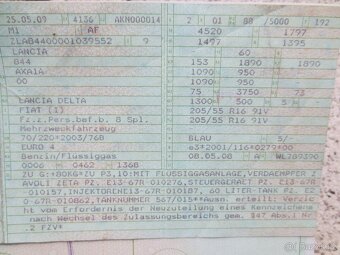 25.05.09 4136 AKN000014 2 01 88 /5000 192
M1 AF 4520 1797
ZLA84400001039552 9 1497 1395
LANCIA 60
844 153 1890 1890
AXA1A 1090 950
00 1090 950
75 3750 73
LANCIA DELTA 1300 500 5
FIAT (I) 205/55 R16 91V
Fz.z.Pers.bef.b. 8 Spl. 205/55 R16 91V
Mehrzweckfahrzeug
70/220*2003/76B BLAU 5/-
EURO 4 63*2001/116*0279*00
Benzin/Flüssiggas 08.05.08 A WL789390
0006 0462 1368
ZU G:+80KG*ZU P3,10:MIT FLÜSSIGGASANLAGE, VERDAMPFER Z
AVOLI ZETA PZ. E13-67R-010276,STEUERGERÄT PZ. E13-67R
-010157,INJEKTORENE13-67R-010187, 60 LITER-TANK PZ.E2
0-67R-010862,TANKNUMMER 567/015**Ausn. erteilt: Verzic
ht vom Erfordernis der Neuzuteilung eines Kennzeichens
nach Wechsel des Zulassungsbereichs gem. §47 Abs.1 Nr.
2 FZV*